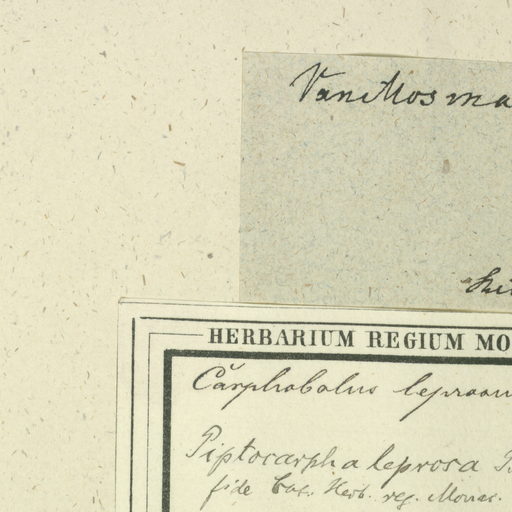 Vanillosma
HERBARIUM REGIUM MO
Carphobolus leprosus
Piptocarpha leprosa
fide Cat. Herb. reg. Monac.